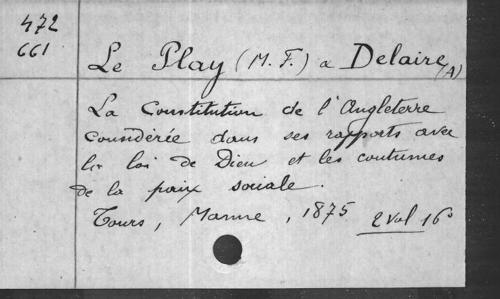 472
661
Le Play (M. F.) a Delaire (A)
La Constitution de l'Angleterre
considérée dans ses rapports avec
la loi de Dieu et les coutumes
de la paix sociale.
Tours, Mame, 1875 2 vol 16°